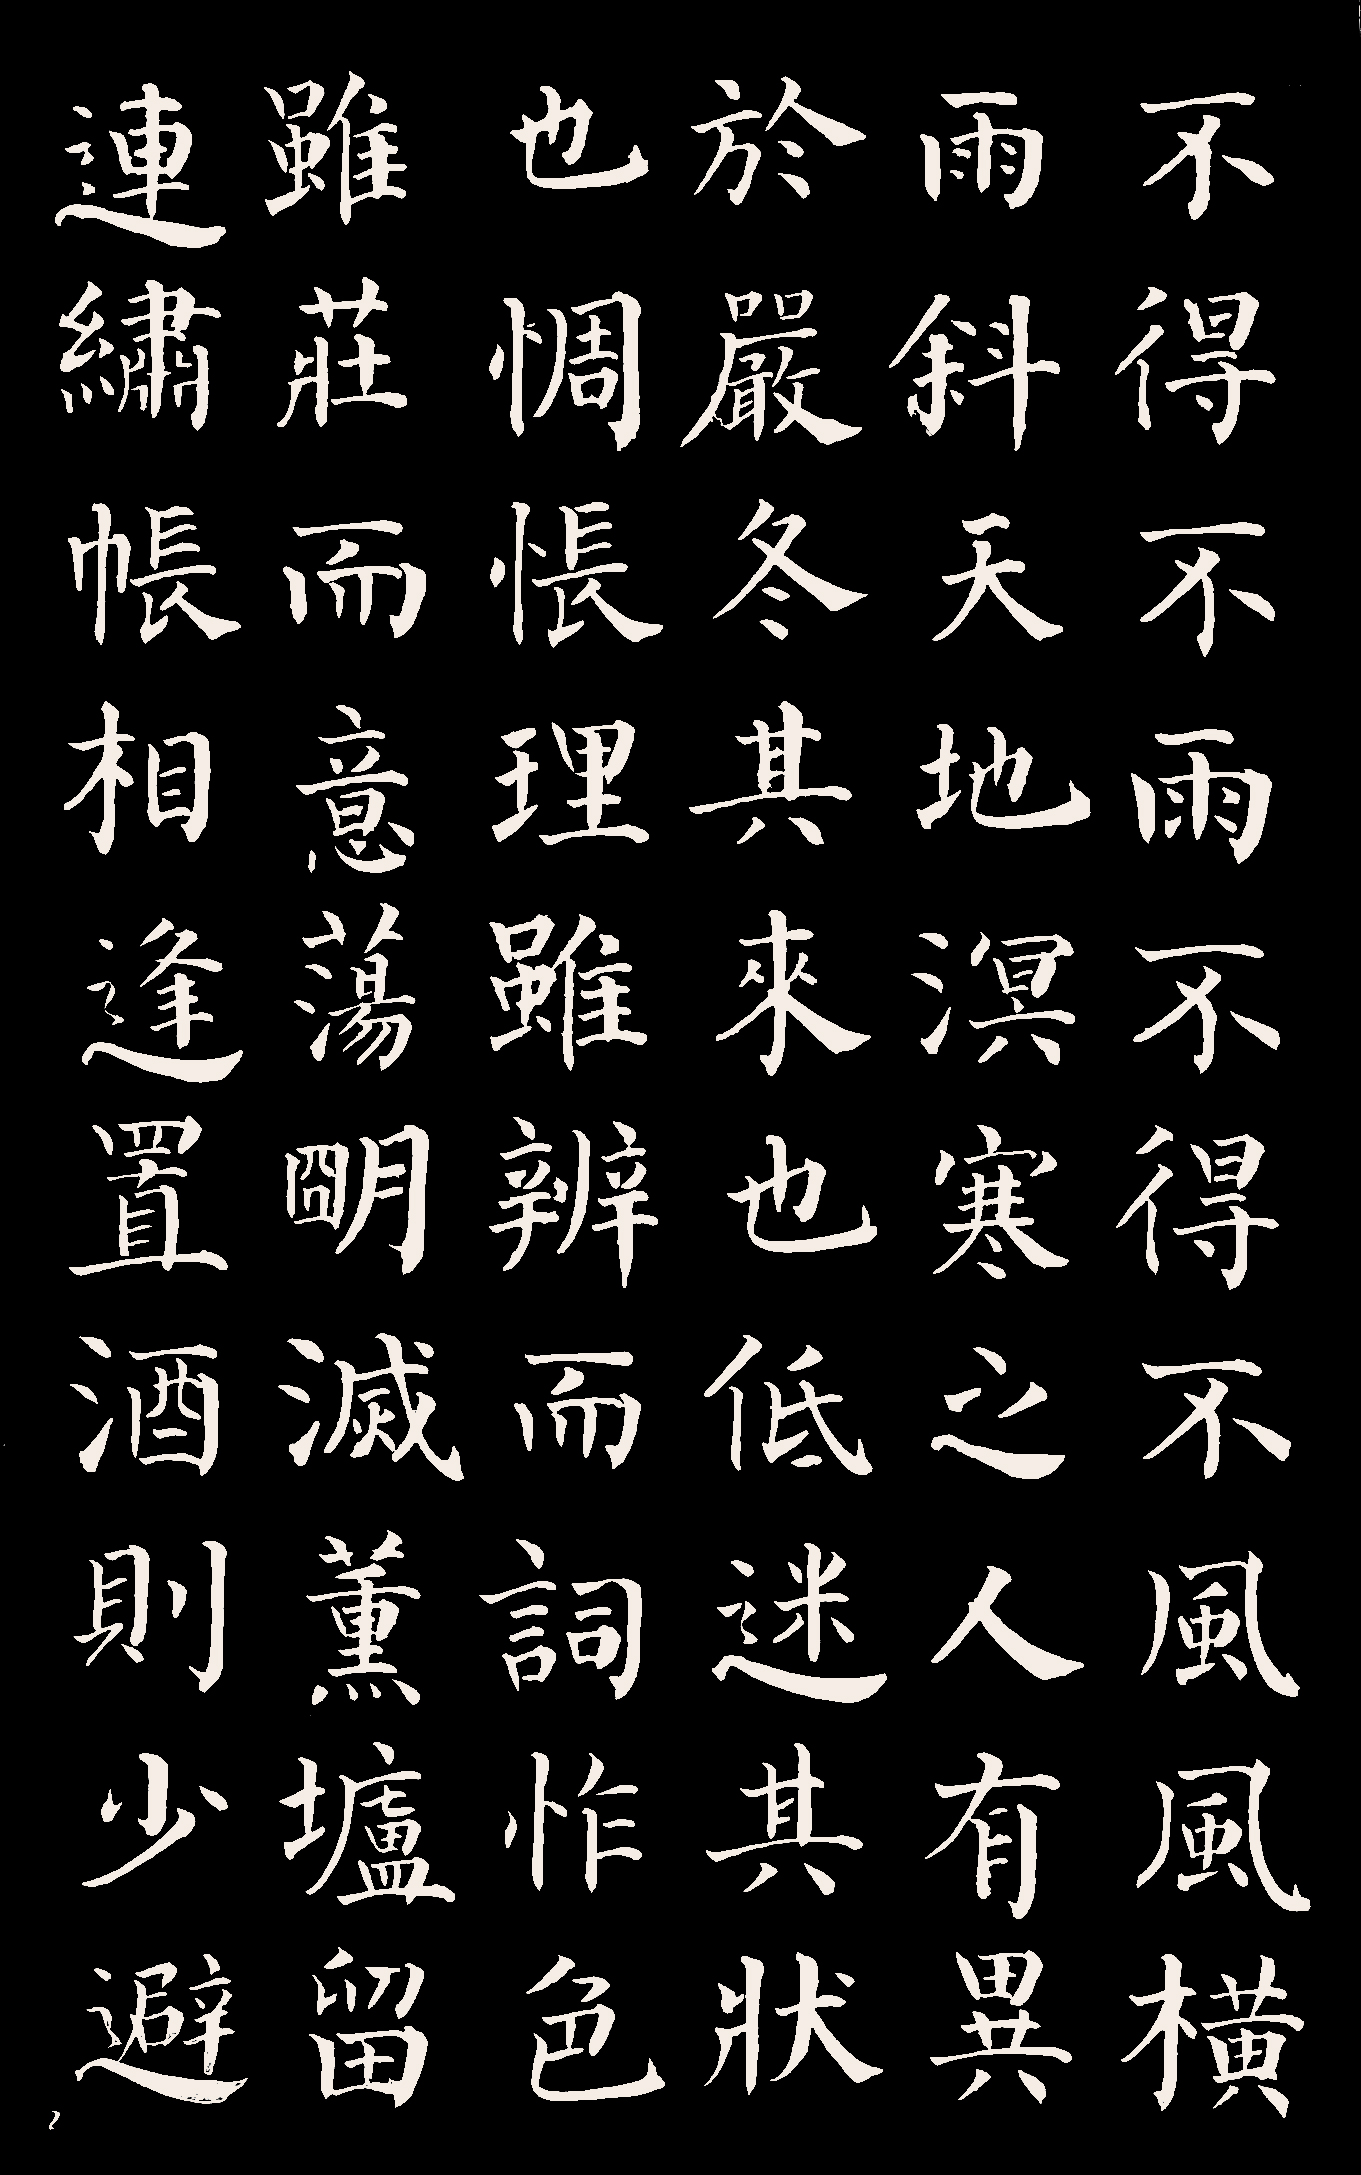 不得不雨不得不風風橫
雨斜天地溟寒之人有異
於嚴冬其來也低迷其狀
也惆悵理雖辨而詞怍色
雖莊而意蕩朙滅薰壚留
連繡帳相逢置酒則少避